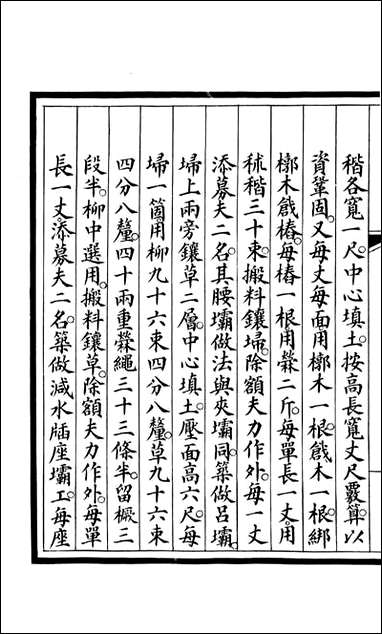 稭各寬一尺中心填土按高長寬丈尺覈算以
資鞏固又每丈每面用槨木一根戧木一根綁
槨木戧樁每樁一根用檾二斤每單長一丈用
秫稭三十束搬料鑲埽除額夫力作外每一丈
添募夫二名其腰壩做法與夾壩同築做呂壩
埽上兩旁鑲草二層中心填土壓面高六尺每
埽一箇用柳九十六束四分八釐草九十六束
四分八釐四十兩重檾繩三十三條半留橛三
段半柳中選用搬料鑲草除額夫力作外每單
長一丈添募夫二名築做減水牐座壩工每座